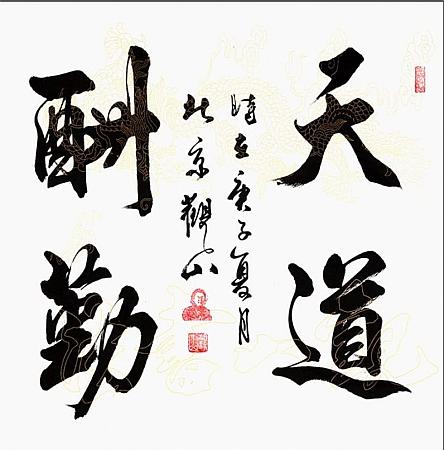 天道
酬勤
時在庚子夏月
北京觀山